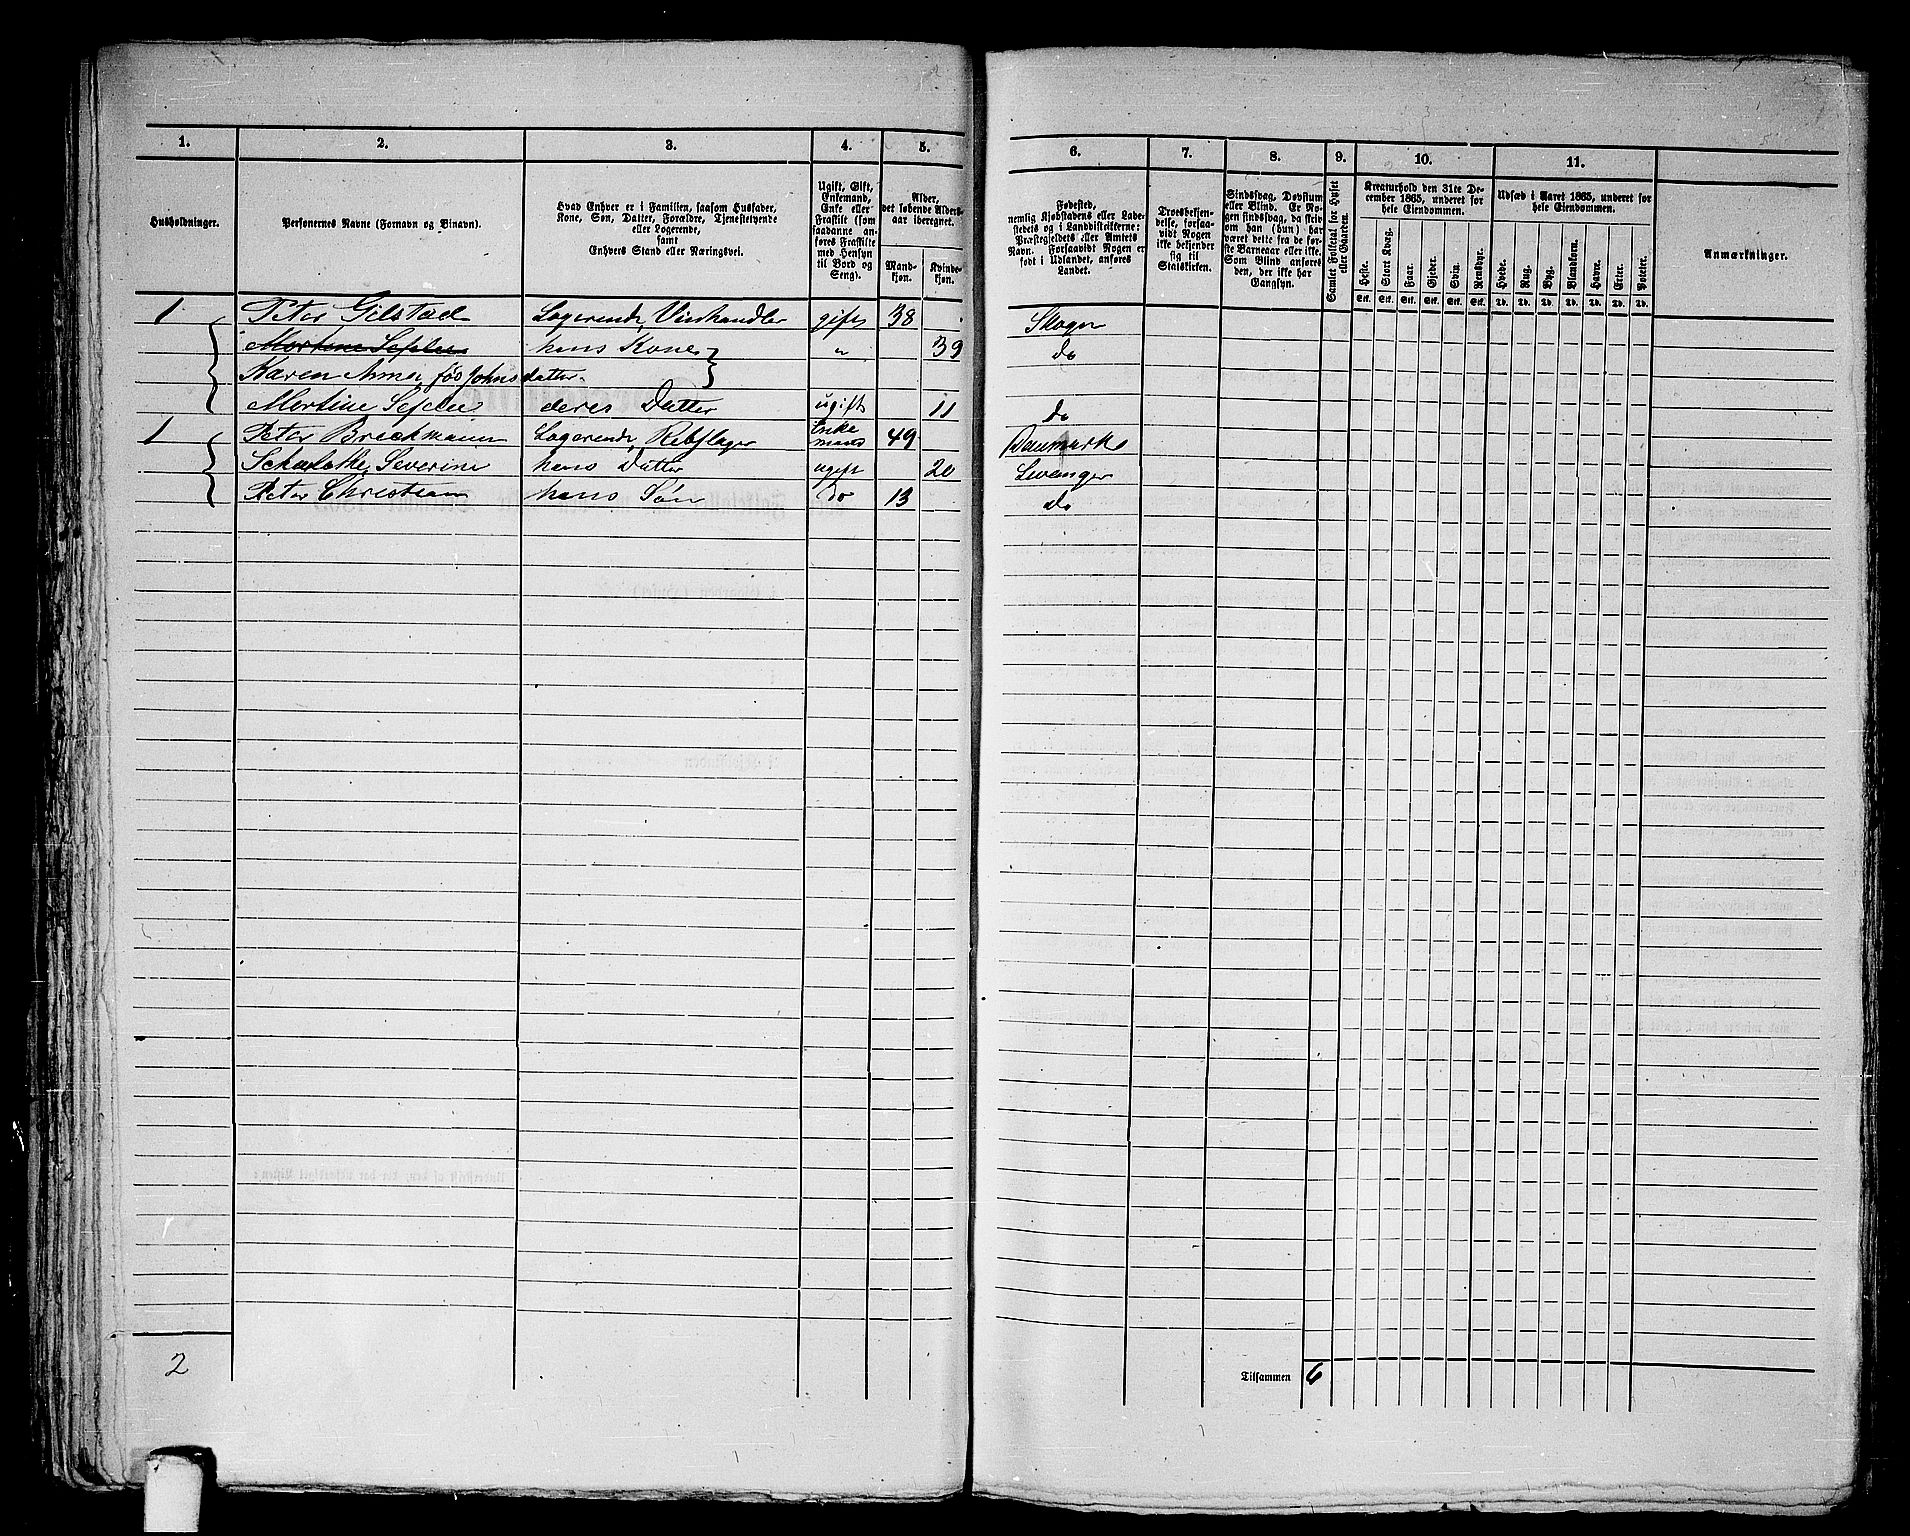 1. 2. 3. 4. 5. 6. 7. 8. 9. 10. 11.
Husholdninger.
Personernes Navne (Fornavn og Binavn).
Hvad Enhver er i Familien, saasom Husfader,
Kone, Søn, Datter, Forældre, Tjenestetyende
eller Logerende,
samt
Enhvers Stand eller Næringsvei.
Ugift, Gift,
Enkemand,
Enke eller
Fraskilt (som
saadanne an-
føres Fraskilte
med Hensyn
til Bord og
Seng).
Alder,
det løbende Alders-
aar iberegnet.
Mand-
kjøn.
Kvinde-
kjøn.
Fødested,
nemlig Kjøbstadens eller Lade-
stedets og i Landdistrikterne:
Præstegjeldets eller Amtets
Navn. Forsaavidt Nogen er
født i Udlandet, anføres
Landet.
Troesbekjen-
delse, forsaa-
vidt Nogen
ikke bekjender
sig til
Statskirken.
Sindssvag, Døvstum
eller Blind. Er No-
gen sindssvag, da skriv
om han (hun) har
været dette fra de før-
ste Barneaar eller ikke.
Som Blind anføres
den, der ikke har
Gangsyn.
Samlet Folketal for Huset
eller Gaarden.
Kreaturhold den 31te De-
cember 1865, underet for
hele Eiendommen.
Heste. Stort Kvæg. Faar. Gjeder. Svin. Rensdyr.
Stk. Stk. Stk. Stk. Stk. Stk.
Udsæd i Aaret 1865, underet for
hele Eiendommen.
Hvede. Rug. Byg. Blandkorn. Havre. Erter. Poteter.
Td. Td. Td. Td. Td. Td. Td.
Anmærkninger.
1 Peter Gilstad Logerende, Vinhandler gift 38 Skoger
Mortine Sefelie hans Kone " 39 do
Karen Anne, fød Johnsdatter
Mortine Sefelie deres Datter ugift 11 do
1 Peter Breckmann Logerende, Rebslager Enke
mand 49 Danmark
Scharlothe Severine hans Datter ugift 20 Levanger
Peter Christian hans Søn do 13 do
2
Tilsammen 6